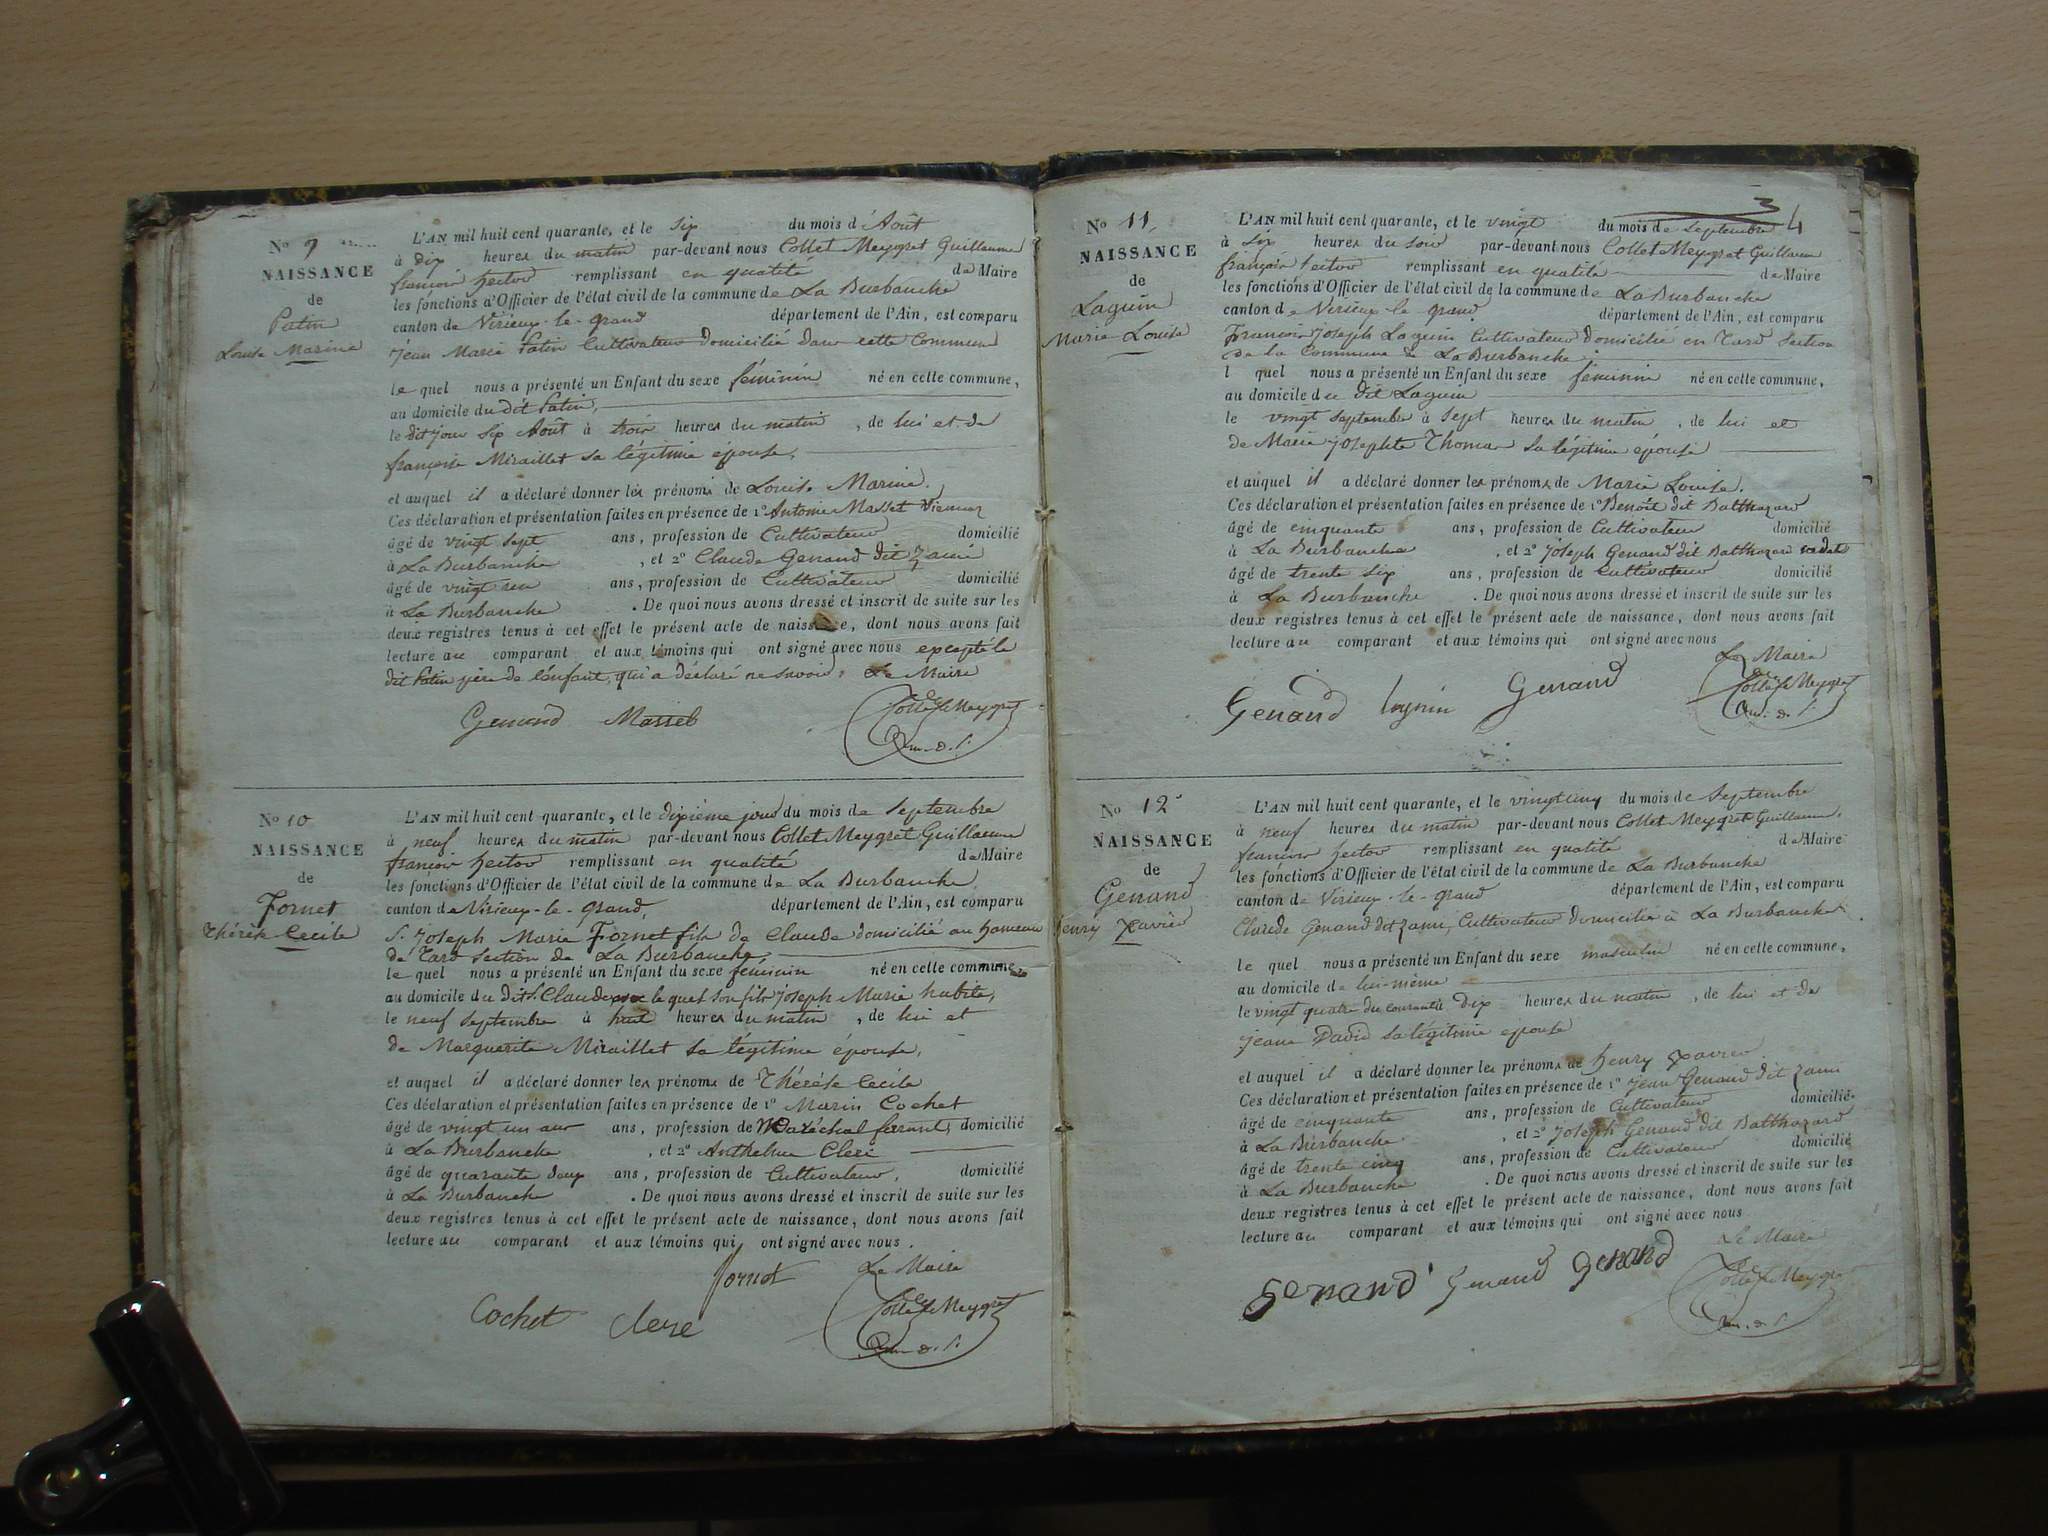 No 9
NAISSANCE
de
Patin
Louise Marine
L'AN mil huit cent quarante, et le six du mois d'Août
à dix heures du matin par-devant nous Collet Meygret Guillaume
françois hector remplissant en qualité de Maire
les fonctions d'Officier de l'état civil de la commune de La Burbanche
canton de Virieux-le-grand département de l'Ain, est comparu
jean Marie Patin Cultivateur domicilié dans cette Commune
le quel nous a présenté un Enfant du sexe féminin né en cette commune,
au domicile du dit Patin,
le dit jour six Août à trois heures du matin, de lui et de
françoise Miraillet sa légitime épouse,
et auquel il a déclaré donner les prénoms de Louise Marine.
Ces déclaration et présentation faites en présence de 1º Antoine Masset
âgé de vingt sept ans, profession de Cultivateur domicilié
à La Burbanche, et 2º Claude Genand dit Zami
âgé de vingt ans, profession de Cultivateur domicilié
à La Burbanche. De quoi nous avons dressé et inscrit de suite sur les
deux registres tenus à cet effet le présent acte de naissance, dont nous avons fait
lecture au comparant et aux témoins qui ont signé avec nous excepté le
dit Patin père de l'enfant, qui a déclaré ne savoir. Le Maire
Genand Masset Collet Meygret
No 10
NAISSANCE
de
Fornet
Thérèse Cecile
L'AN mil huit cent quarante, et le dixième jour du mois de septembre
à neuf heures du matin par-devant nous Collet Meygret Guillaume
françois hector remplissant en qualité de Maire
les fonctions d'Officier de l'état civil de la commune de La Burbanche
canton de Virieux-le-grand, département de l'Ain, est comparu
S. Joseph Marie Fornet fils de Claude domicilié au hameau
de Tard section de La Burbanche
le quel nous a présenté un Enfant du sexe féminin né en cette commune,
au domicile du dit S. Claude avec le quel son fils joseph Marie habite,
le neuf septembre à huit heures du matin, de lui et
de Marguerite Miraillet sa légitime épouse,
et auquel il a déclaré donner les prénoms de Thérèse Cecile
Ces déclaration et présentation faites en présence de 1º Marin Cochet
âgé de vingt un ans ans, profession de Maréchal ferrant, domicilié
à La Burbanche, et 2º Anthelme Clerc
âgé de quarante deux ans, profession de Cultivateur, domicilié
à La Burbanche. De quoi nous avons dressé et inscrit de suite sur les
deux registres tenus à cet effet le présent acte de naissance, dont nous avons fait
lecture au comparant et aux témoins qui ont signé avec nous.
Fornet Le Maire
Cochet Clerc Collet Meygret
3 4
No 11
NAISSANCE
de
Laguin
Marie Louise
L'AN mil huit cent quarante, et le vingt du mois de septembre
à six heures du soir par-devant nous Collet Meygret Guillaume
françois hector remplissant en qualité de Maire
les fonctions d'Officier de l'état civil de la commune de La Burbanche
canton de Virieux-le-grand département de l'Ain, est comparu
François Joseph Laguin Cultivateur domicilié en Tard section
de la Commune de La Burbanche
l quel nous a présenté un Enfant du sexe féminin né en cette commune,
au domicile du dit Laguin
le vingt septembre à sept heures du matin, de lui et
de Marie josephte Thomas sa légitime épouse
et auquel il a déclaré donner les prénoms de Marie Louise.
Ces déclaration et présentation faites en présence de 1º Benoît dit Balthazard
âgé de cinquante ans, profession de Cultivateur domicilié
à La Burbanche, et 2º joseph Genand dit Balthazard cadet
âgé de trente six ans, profession de Cultivateur domicilié
à La Burbanche. De quoi nous avons dressé et inscrit de suite sur les
deux registres tenus à cet effet le présent acte de naissance, dont nous avons fait
lecture au comparant et aux témoins qui ont signé avec nous
Le Maire
Genand laguin Genand Collet Meygret
No 12
NAISSANCE
de
Genand
henry Xavier
L'AN mil huit cent quarante, et le vingt cinq du mois de septembre
à neuf heures du matin par-devant nous Collet Meygret Guillaume,
françois hector remplissant en qualité de Maire
les fonctions d'Officier de l'état civil de la commune de La Burbanche
canton de Virieux-le-grand département de l'Ain, est comparu
Claude Genand dit Zami, Cultivateur domicilié à La Burbanche
le quel nous a présenté un Enfant du sexe masculin né en cette commune,
au domicile de lui-même
le vingt quatre du courant à dix heures du matin, de lui et de
jeane David sa légitime epouse
et auquel il a déclaré donner les prénoms de henry Xavier
Ces déclaration et présentation faites en présence de 1º jean Genand dit Zami
âgé de cinquante ans, profession de Cultivateur domicilié
à La Burbanche, et 2º joseph Genand dit Balthazard
âgé de trente cinq ans, profession de Cultivateur domicilié
à La Burbanche. De quoi nous avons dressé et inscrit de suite sur les
deux registres tenus à cet effet le présent acte de naissance, dont nous avons fait
lecture au comparant et aux témoins qui ont signé avec nous
Le Maire
Genand Genand Genand Collet Meygret